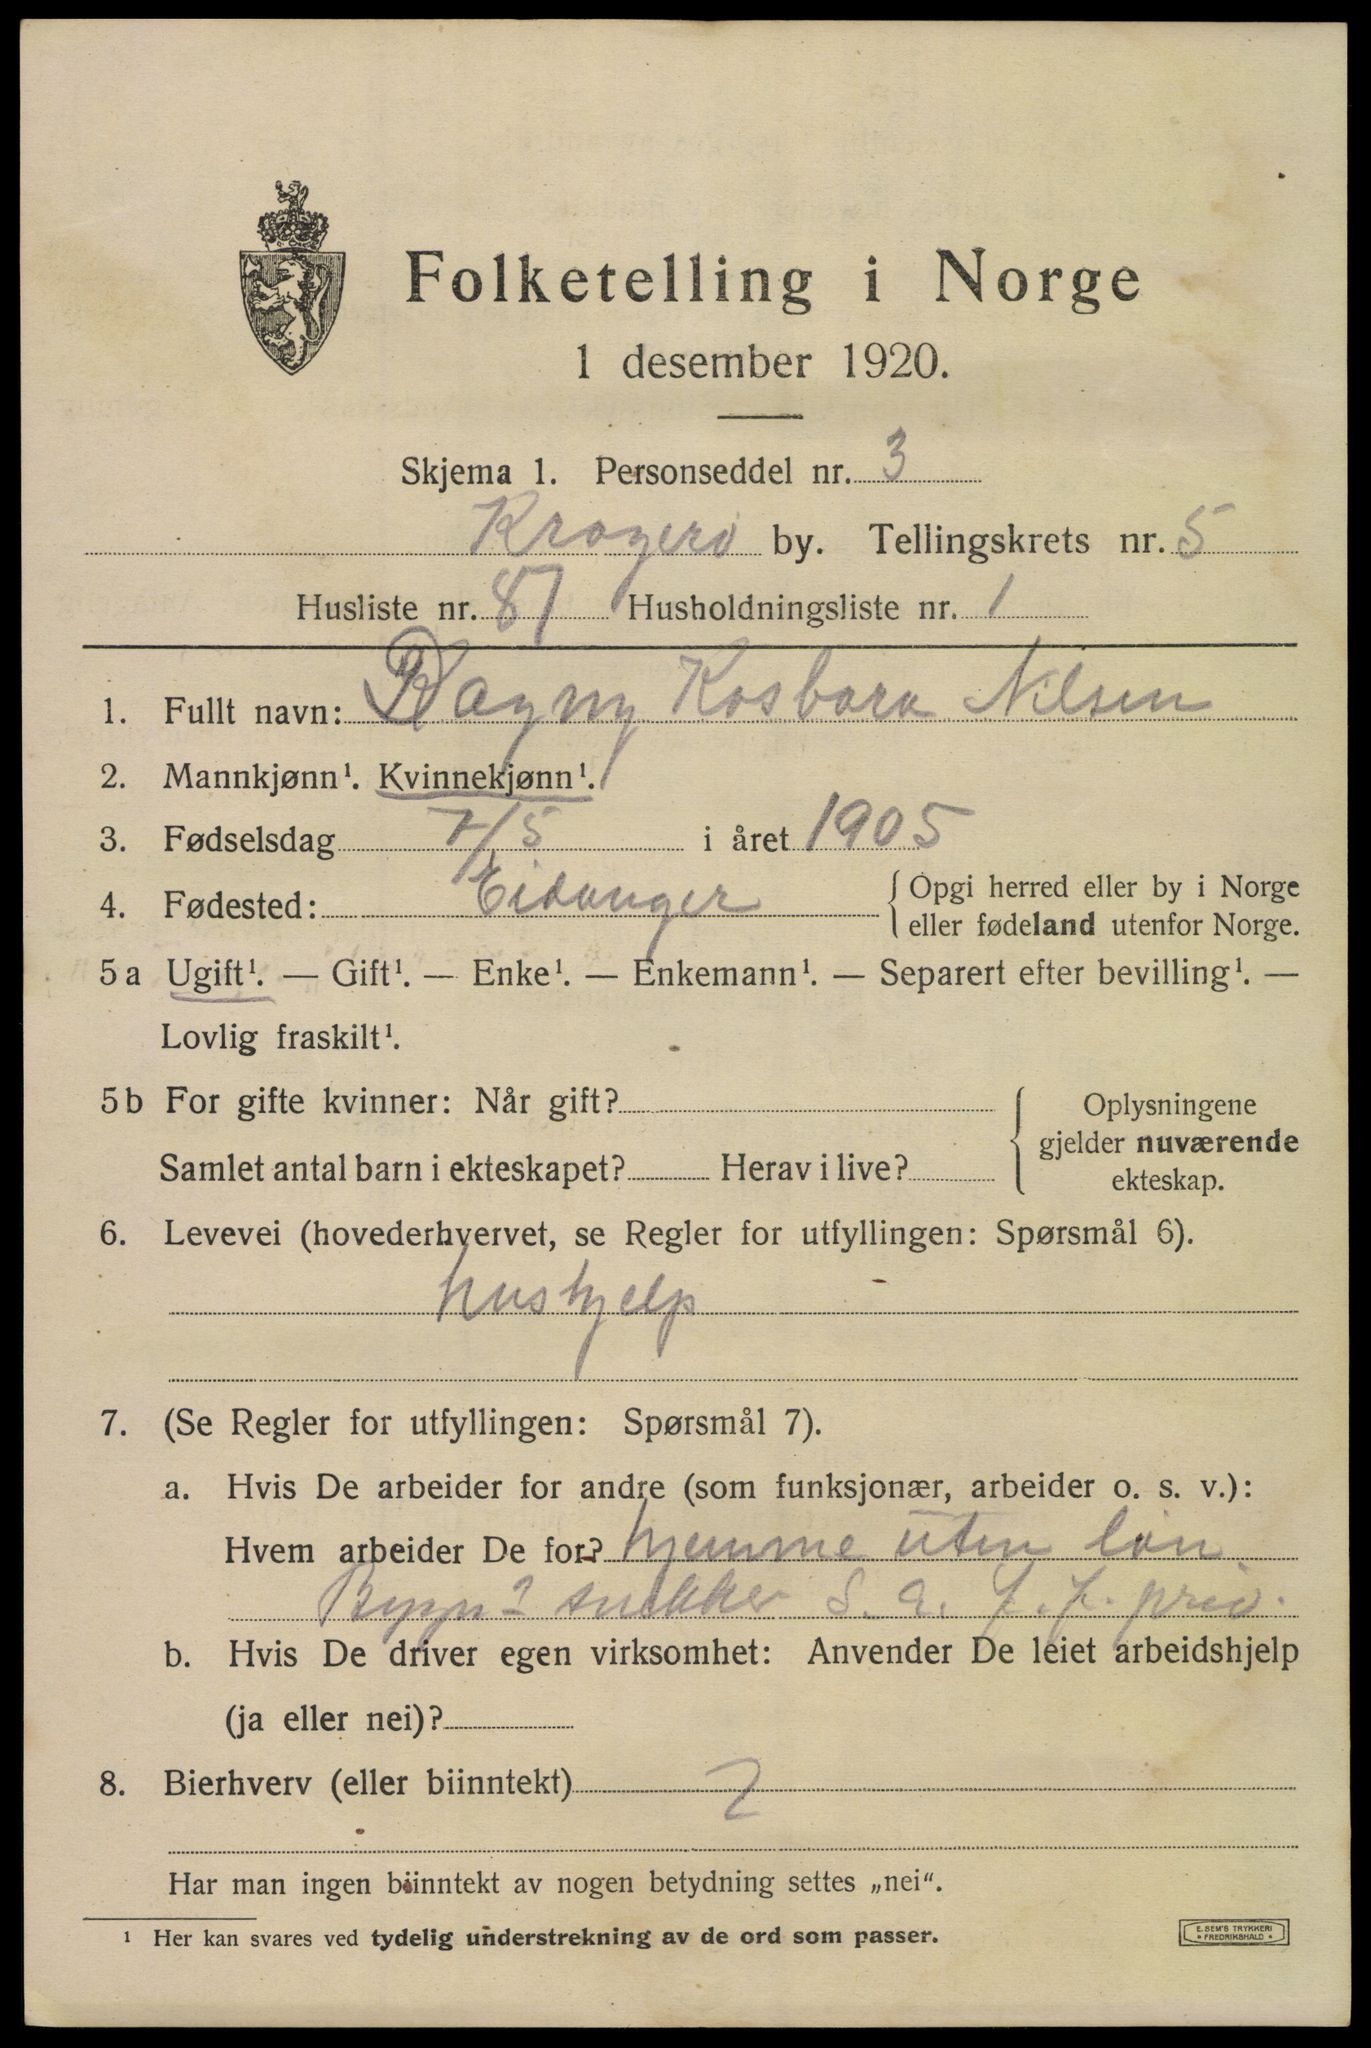 Folketelling i Norge
1 desember 1920.
Skjema 1. Personseddel nr. 3
Kragerø by. Tellingskrets nr. 5
Husliste nr. 87 Husholdningsliste nr. 1
1. Fullt navn: Dagny Kosbara Nilsen
2. Mannkjønn¹. Kvinnekjønn¹.
3. Fødselsdag 7/5 i året 1905
4. Fødested: Eidanger { Opgi herred eller by i Norge
eller fødeland utenfor Norge.
5 a Ugift¹. — Gift¹. — Enke¹. — Enkemann¹. — Separert efter bevilling¹. —
Lovlig fraskilt¹.
5 b For gifte kvinner: Når gift?
Samlet antal barn i ekteskapet? Herav i live?
{ Oplysningene
gjelder nuværende
ekteskap.
6. Levevei (hovederhvervet, se Regler for utfyllingen: Spørsmål 6).
hushjelp
7. (Se Regler for utfyllingen: Spørsmål 7).
a. Hvis De arbeider for andre (som funksjonær, arbeider o. s. v.):
Hvem arbeider De for? hjemme uten løn.
snekker S. a. f. f. priv.
b. Hvis De driver egen virksomhet: Anvender De leiet arbeidshjelp
(ja eller nei)?
8. Bierhverv (eller biinntekt)
Har man ingen biinntekt av nogen betydning settes „nei".
¹ Her kan svares ved tydelig understrekning av de ord som passer.
E. SEM'S TRYKKERI
FREDRIKSHALD